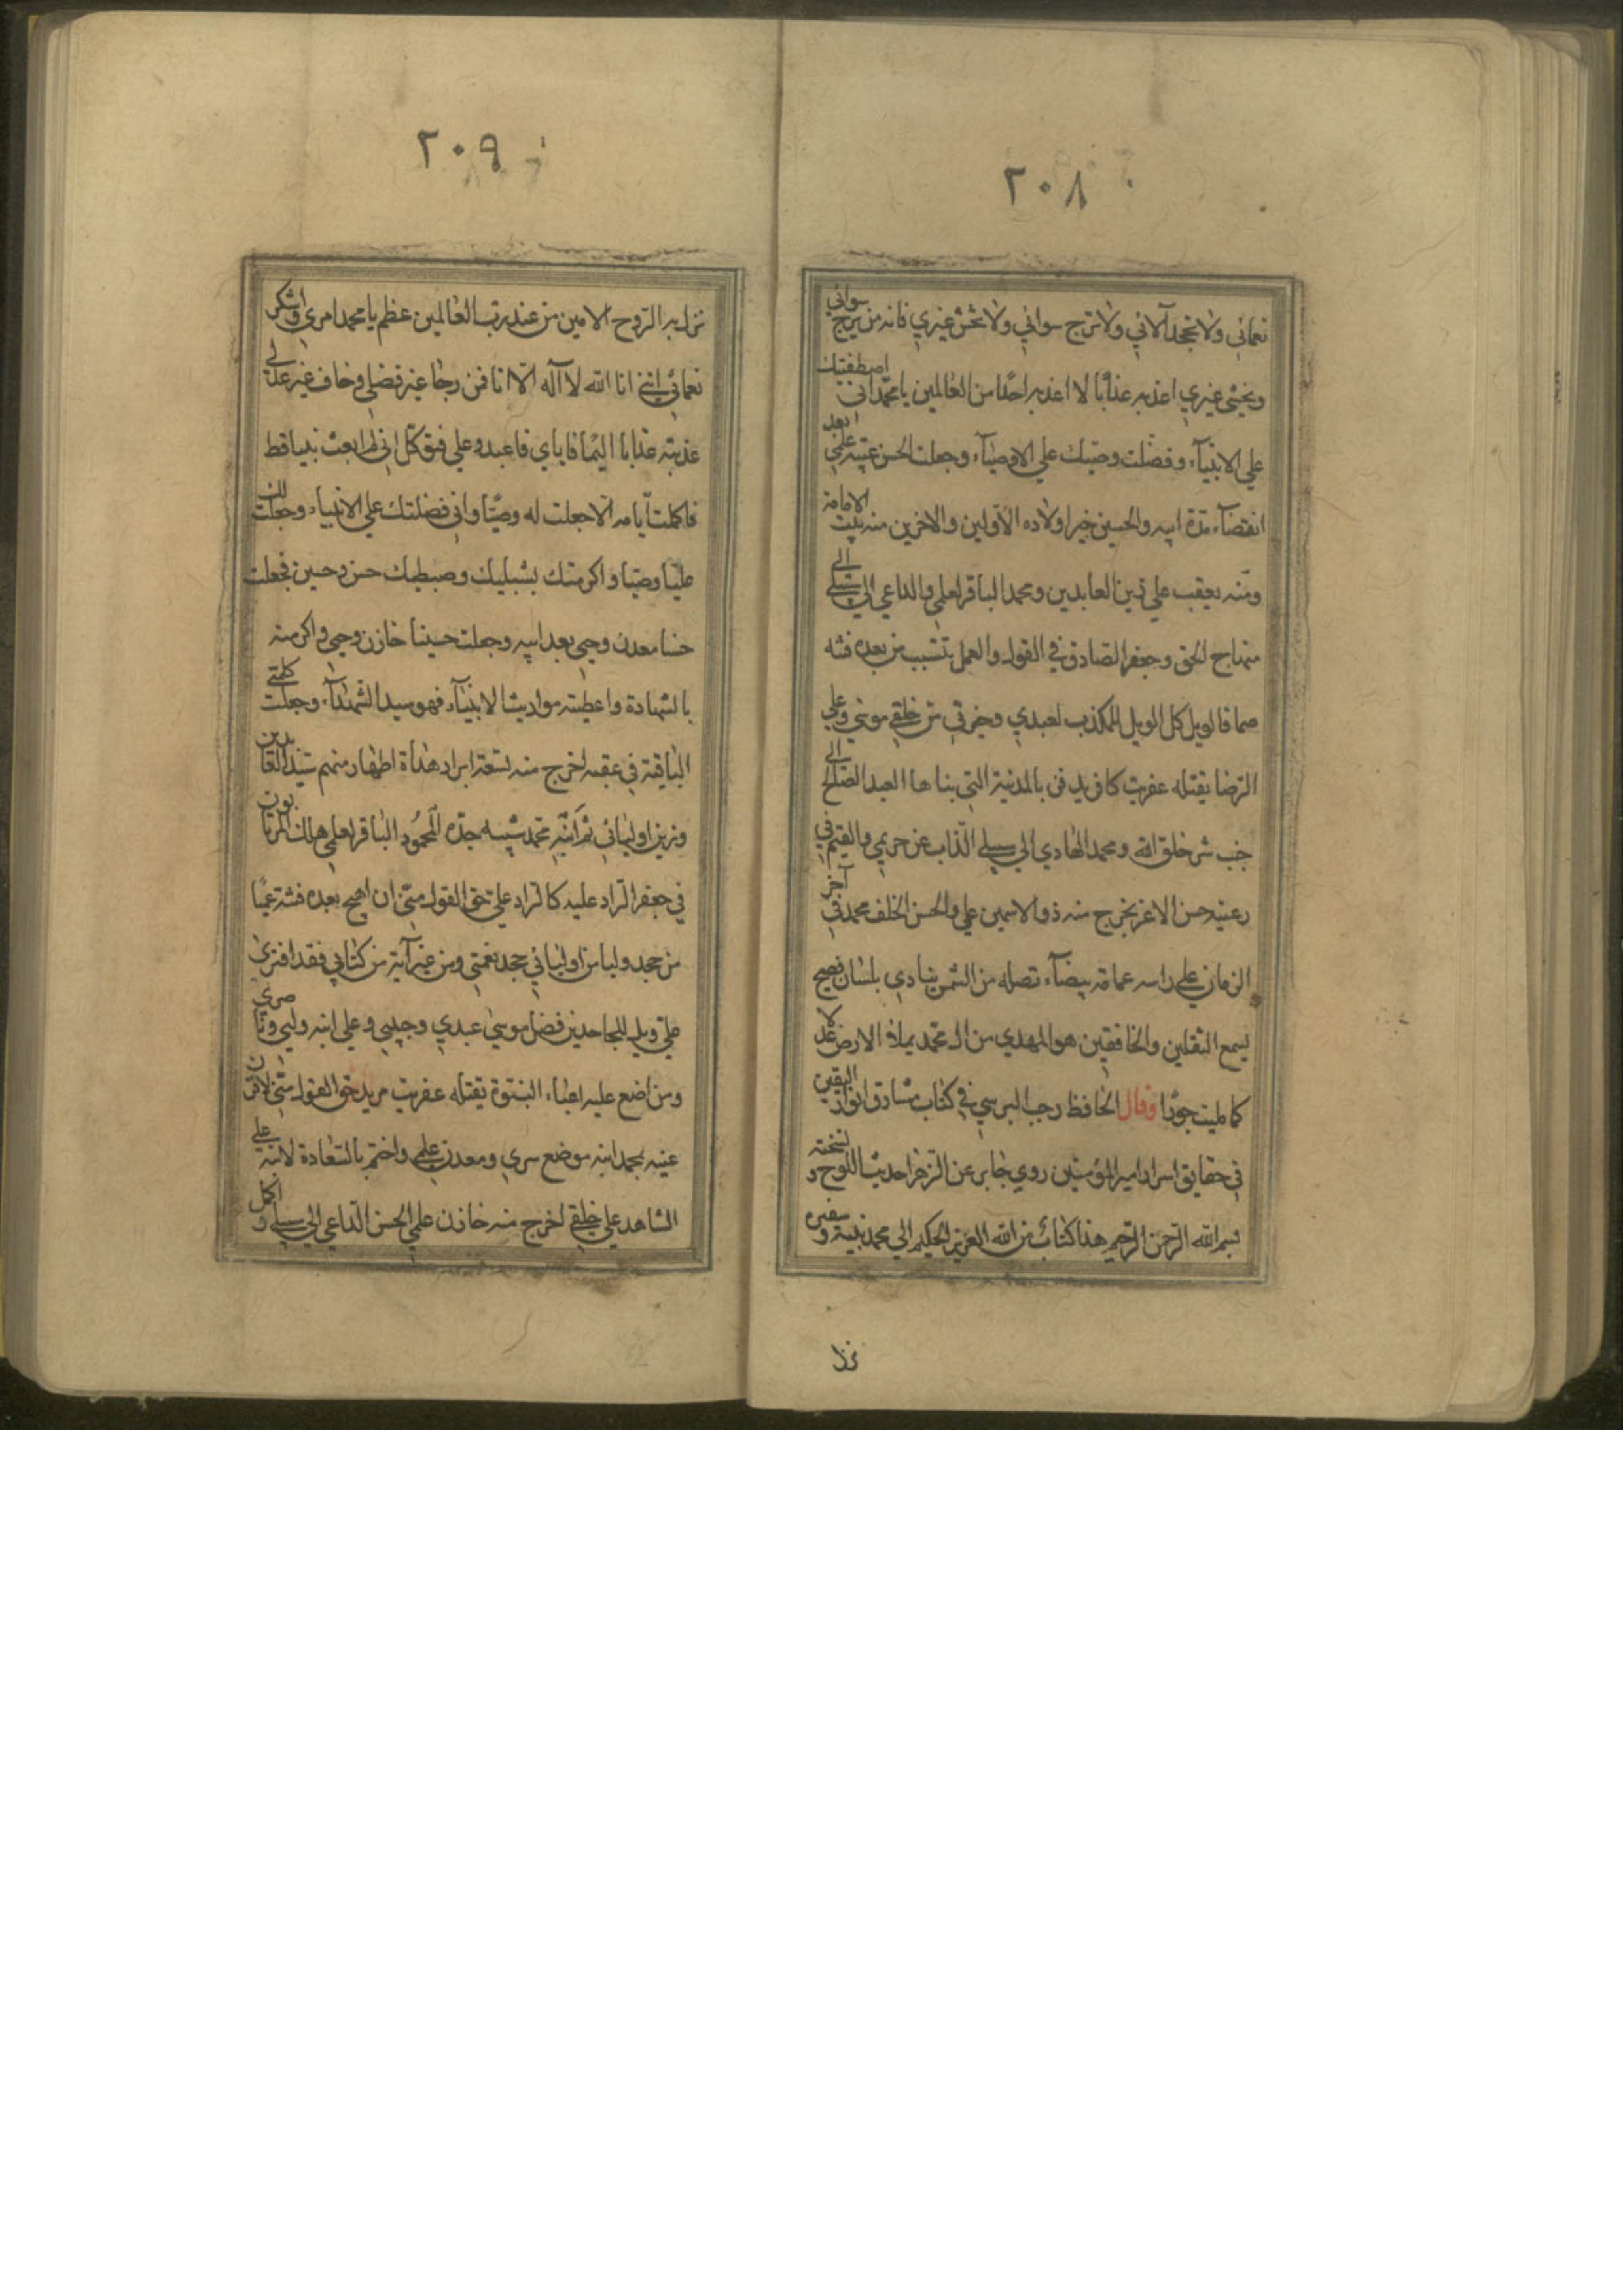 ٢٠٨
نعمائي ولا تجحد آلائي ولا ترج سوائي ولا تخش غيري فانه من يرج سوائي
ويخشى غيري اعذبه عذابا لا اعذبه احدا من العالمين يا محمد اني اصطفيتك
علي الانبيآء وفضلت وصيك علي الاوصيآء وجعلت الحسن عيبة علمي بعد
انقضآء مدة ابيه والحسين خير اولاده الاولين والاخرين منه الامامة
ومنه يعقب علي زين العابدين ومحمد الباقر لعلمي والداعي الي سبيلي
منهاج الحق وجعفر الصادق في القول والعمل تنشب من بعده فتنه
صما فالويل كل الويل للمكذب لعبدي وخيرتي من خلقي موسي وعلي
الرضا يقتله عفريت كافر يدفن بالمدينة التي بناها العبد الصالح الي
جنب شر خلق الله ومحمد الهادي الي سبيلي الذاب عن حريمي والقيم في
رعيته حسن الاغر يخرج منه ذو الاسمين علي والحسن الخلف محمد في آخر
الزمان علي راسه عمامة بيضآء تصله من الشمس ينادي بلسان فصيح
يسمع الثقلين والخافقين هو المهدي من آل محمد يملأ الارض عدلا
كما ملئت جورا وقال الحافظ رجب البرسي في كتاب مشارق انوار اليقين
في حقايق اسرار امير المؤمنين روي جابر عن الزهرا حديث اللوح و نسخته
بسم الله الرحمن الرحيم هذا كتاب من الله العزيز الحكيم الي محمد نبيه و سفيره
نزل
٢٠٩
نزل به الروح الامين من عند رب العالمين عظم يا محمد امري و اشكر
نعمائي انني انا الله لا اله الا انا فمن رجا غير فضلي وخاف غير عدلي
عذبته عذابا اليما فاياي فاعبد وعلي فتوكل اني لم ابعث نبيا قط
فاكملت ايامه الا جعلت له وصيا واني فضلتك علي الانبياء وجعلت لك
عليا وصيا واكرمتك بشبليك وسبطيك حسن وحسين فجعلت
حسنا معدن وحيي بعد ابيه وجعلت حسينا خازن وحيي واكرمته
بالشهادة واعطيته مواريث الانبيآء فهو سيد الشهدآء وجعلت كلمتي
الباقية في عقبه اخرج منه تسعة ابرار هداة اطهار منهم سيد العابدين
وزين اوليائي ثم ابنه محمد شبيه جده المحمود الباقر لعلمي هلك المرتابون
في جعفر الراد عليه كالراد علي حق القول مني ان اهيج بعده فتنه عميا
من جحد وليا من اوليائي جحد نعمتي ومن غير آية من كتابي فقد افتري
علي ويل للجاحدين فضل موسي عبدي وحبيبي وعلي ابنه وليي وناصري
ومن اضع عليه اعباء النبوة يقتله عفريت مريد حق القول مني لاقرن
عينه بمحمد ابنه موضع سري ومعدن علمي واختم بالسعادة لابنه علي
الشاهد علي خلقي اخرج منه خازن علمي الحسن الداعي الي سبيلي و اكمل